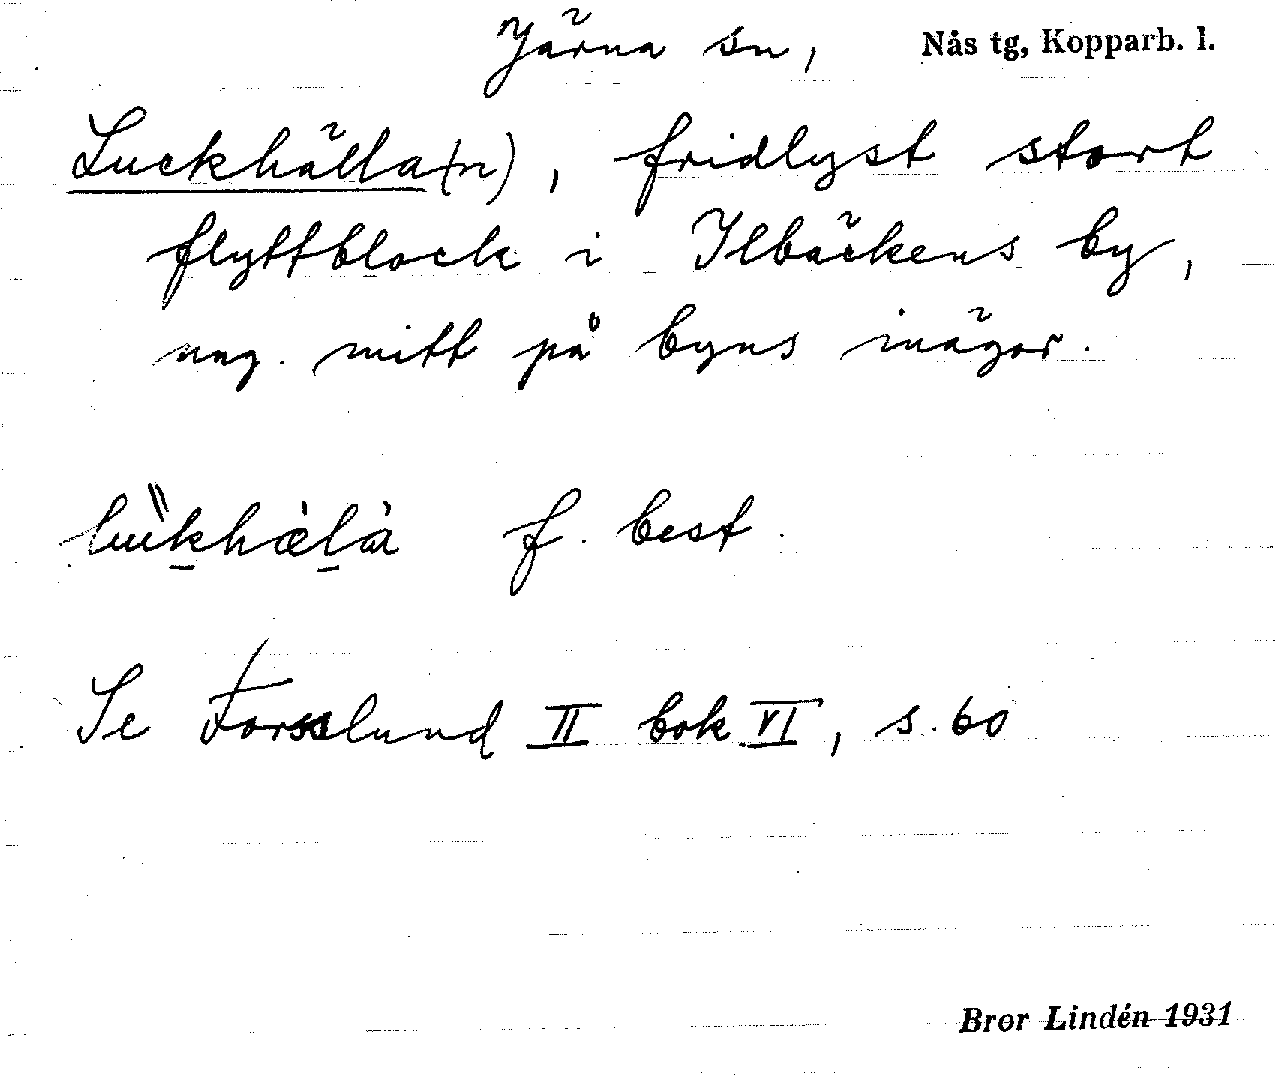 Järna sn, Nås tg, Kopparb. l.
Luckhälla(n), fridlyst stort
flyttblock i Ilbäckens by,
ung. mitt på byns inägor.
f. best.
Se Forsslund II bok VI, s. 60
Bror Lindén 1931